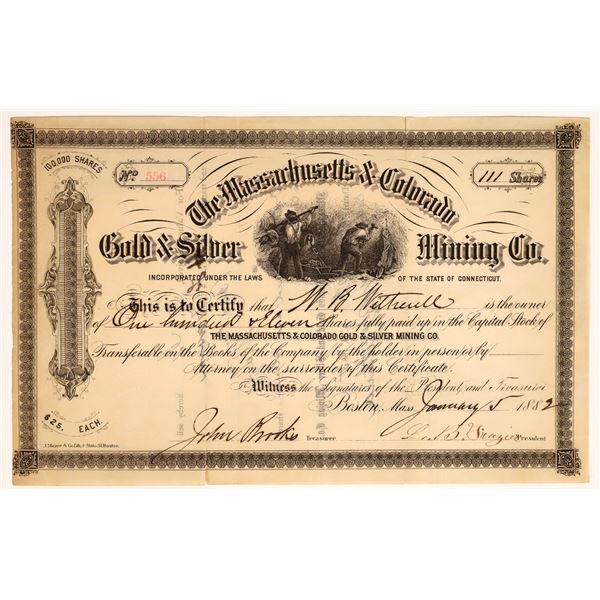 100,000 SHARES
No. 556
111 Shares
The Massachusetts & Colorado
Gold & Silver Mining Co.
INCORPORATED UNDER THE LAWS OF THE STATE OF CONNECTICUT.
This is to Certify that W. R. Wetherill is the owner
of One hundred & Eleven Shares fully paid up in the Capital Stock of
THE MASSACHUSETTS & COLORADO GOLD & SILVER MINING CO.
Transferable on the Books of the Company by the holder in person or by
Attorney on the surrender of this Certificate.
Witness the Signatures of the President and Treasurer
Boston, Mass. January 5 1882
$25. EACH.
John Brooks Treasurer
President
J. Mayer & Co. Lith. 4 State St. Boston.